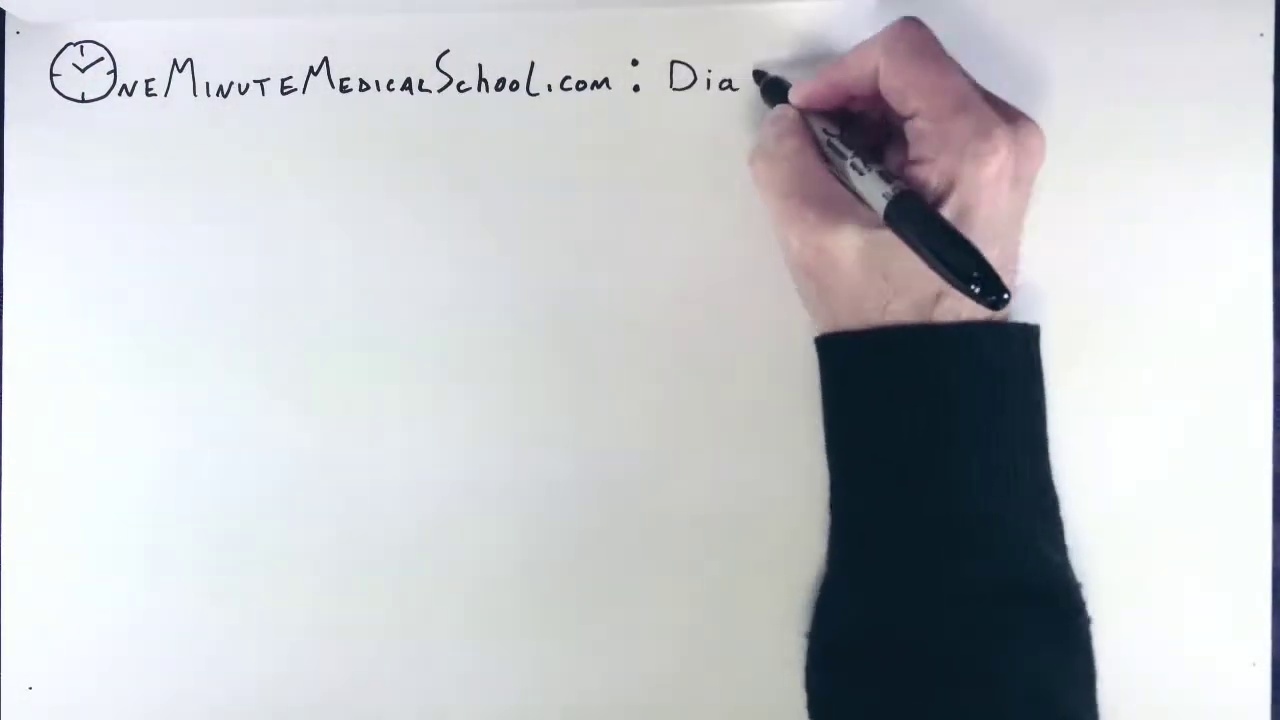 OneMinuteMedicalSchool.com: Dia